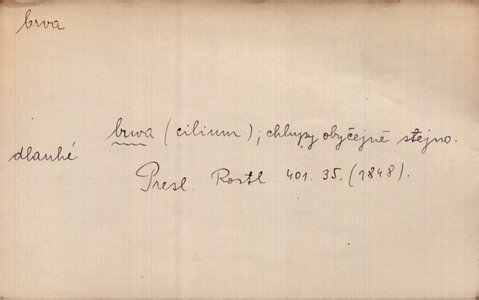 brva
brwa (cilium); chlupy obyčejně stejno.
dlauhé
Presl. Rostl. 401. 35. (1848).